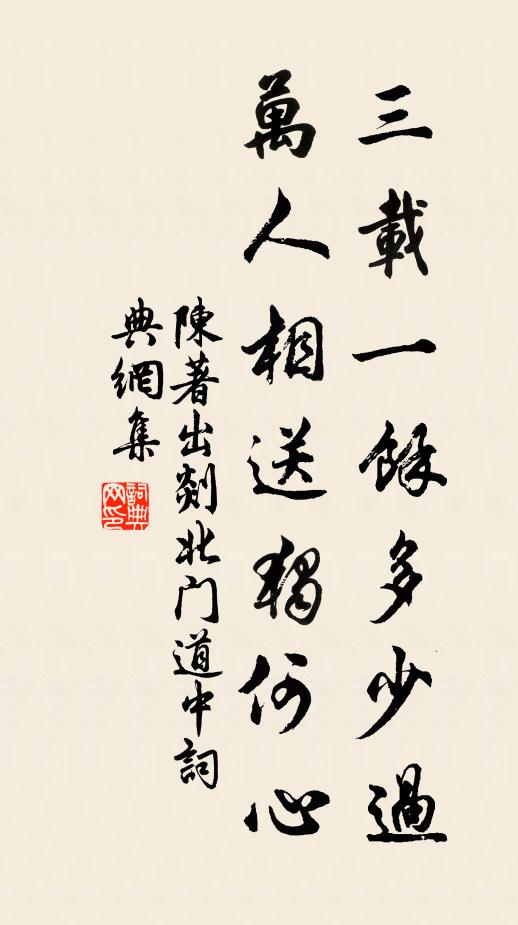 三載一餘多少過
萬人相送獨何心
陳著出剡北门道中詞
典網集
詞典
网印